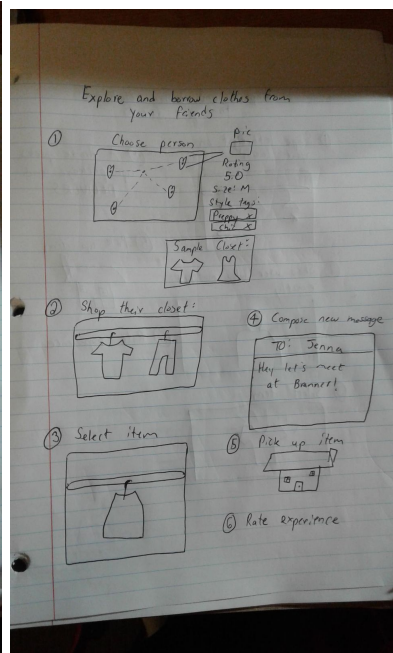 Explore and borrow clothes from
your friends
① Choose person
pic
Rating
5.0
Size: M
Style tags:
Preppy x
Chic x
Sample Closet:
② Shop their closet:
③ Select item
④ Compose new message
TO: Jenna
Hey let's meet
at Branner!
⑤ Pick up item
⑥ Rate experience